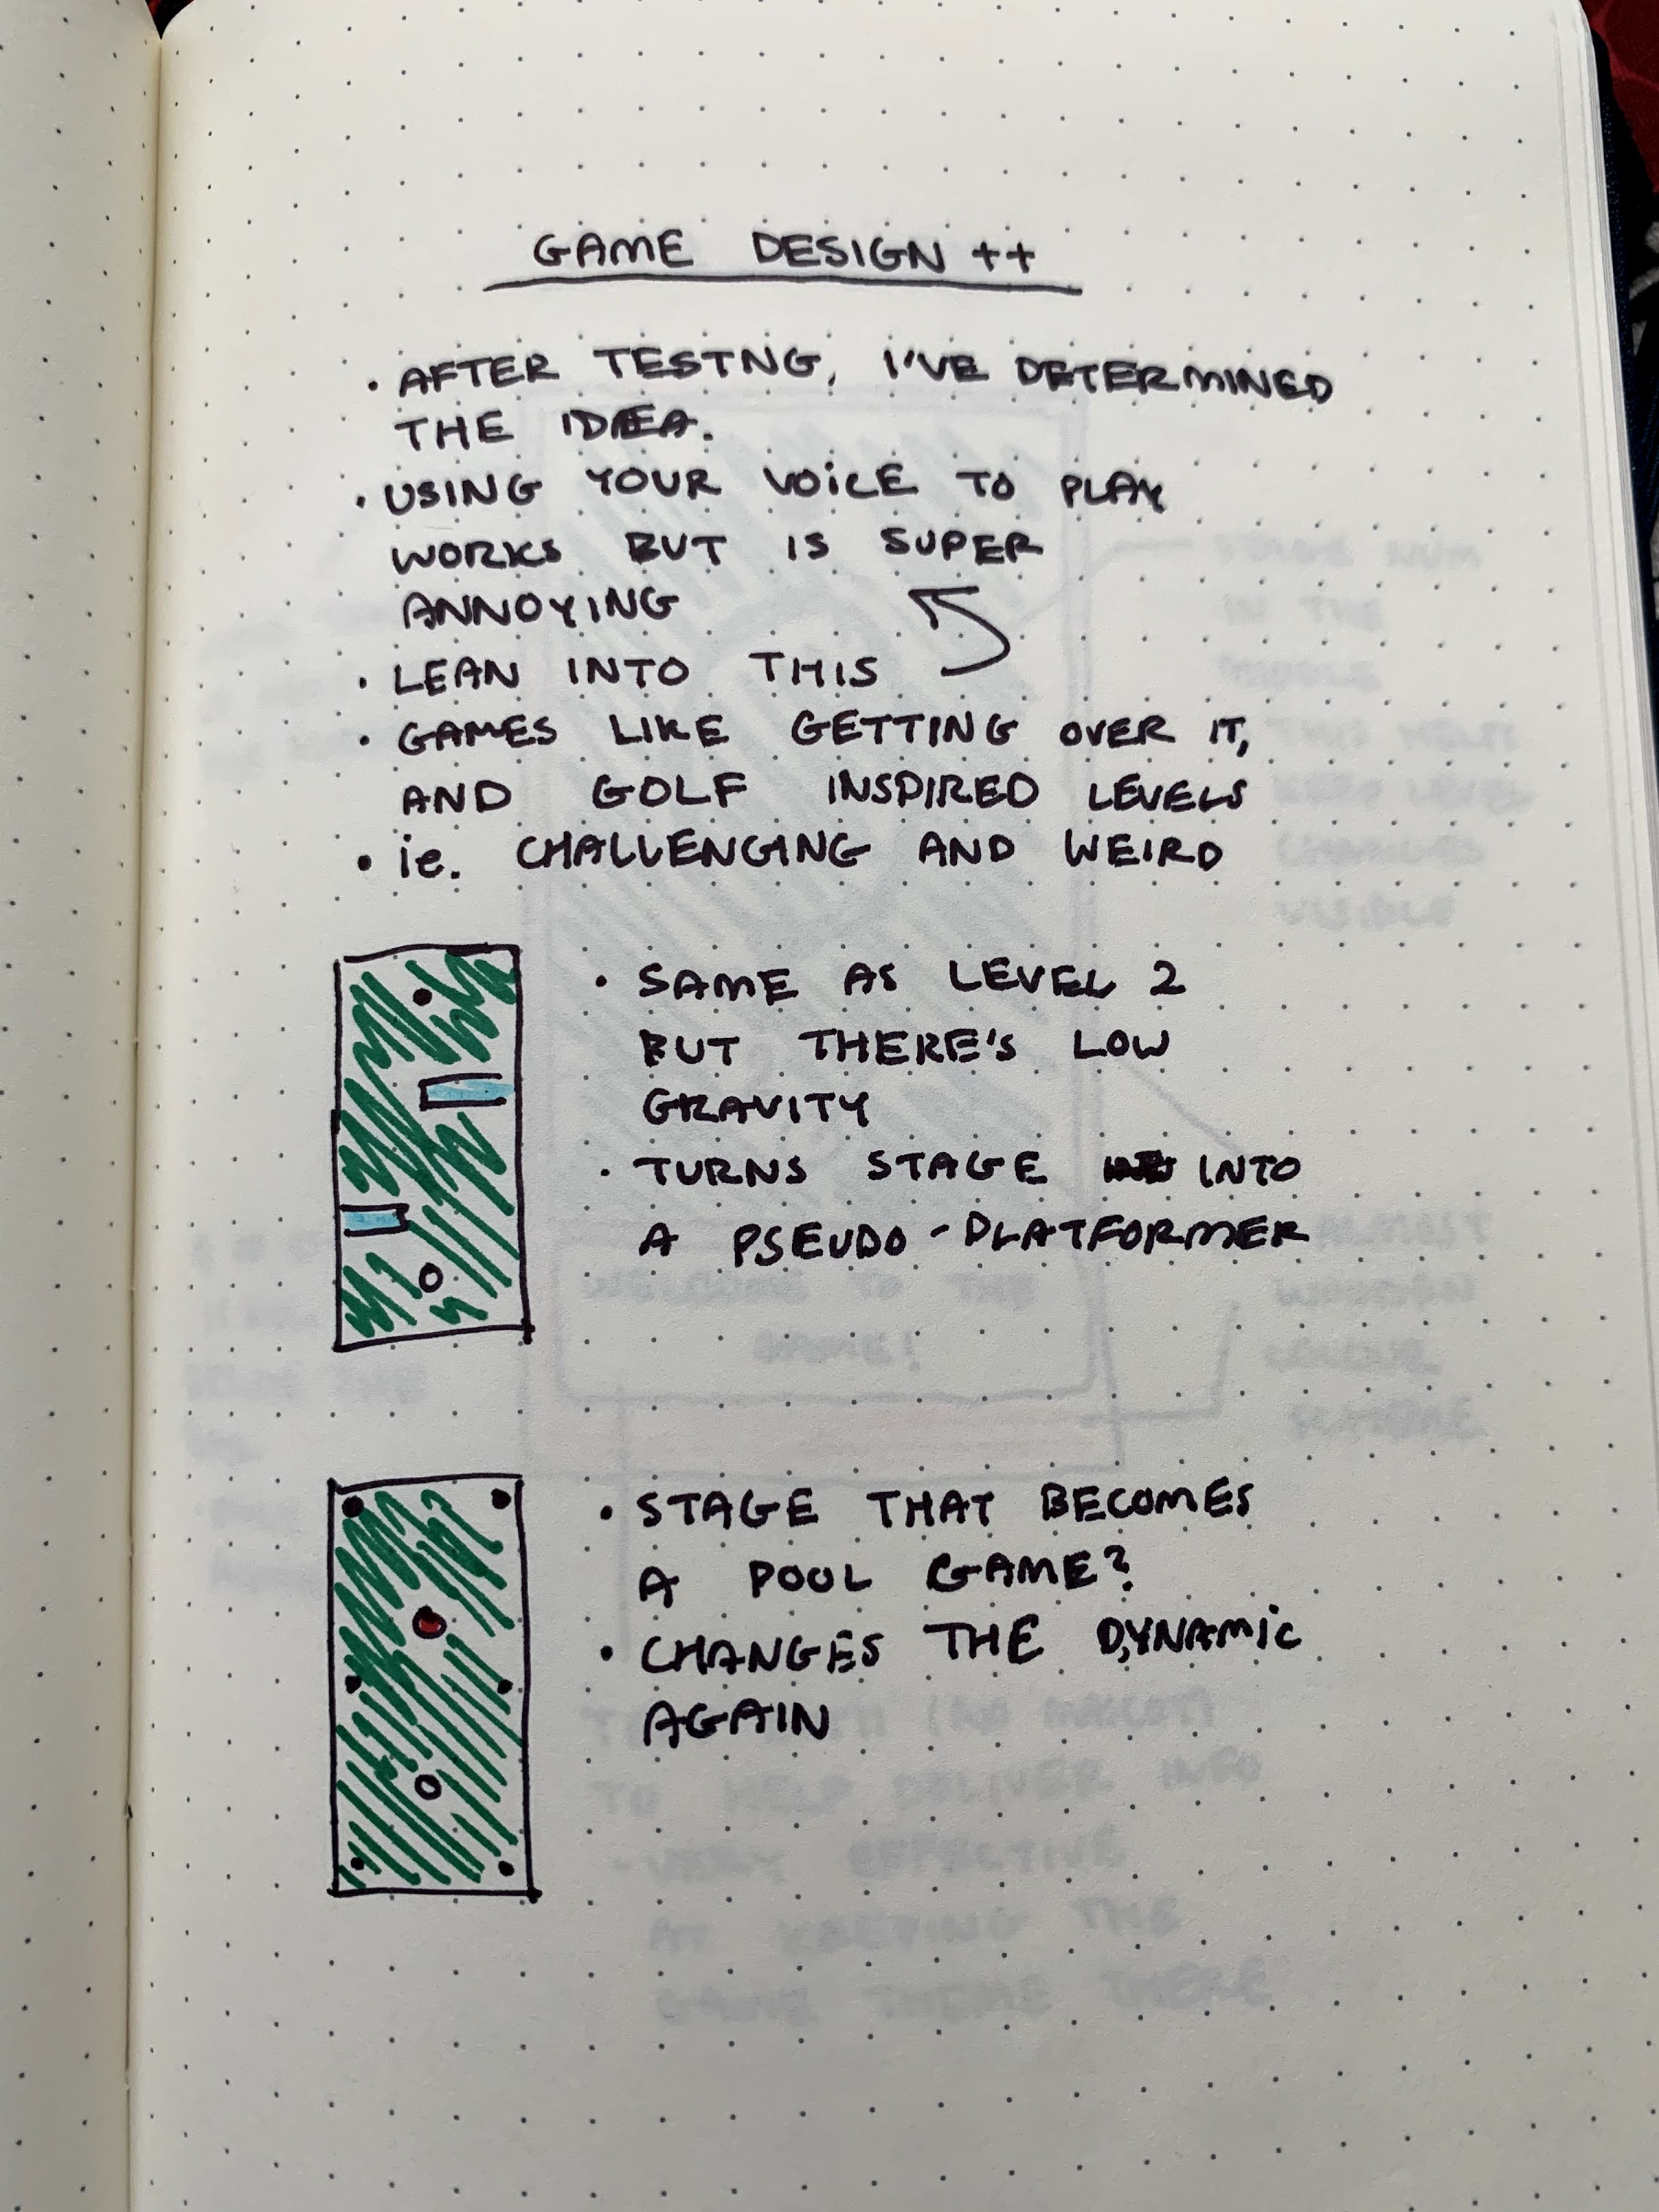 GAME DESIGN ++
• AFTER TESTNG, I'VE DETERMINED
THE IDEA.
• USING YOUR VOICE TO PLAY
WORKS BUT IS SUPER
ANNOYING
• LEAN INTO THIS
• GAMES LIKE GETTING OVER IT,
AND GOLF INSPIRED LEVELS
• ie. CHALLENGING AND WEIRD
• SAME AS LEVEL 2
BUT THERE'S LOW
GRAVITY
• TURNS STAGE INTO
A PSEUDO-PLATFORMER
• STAGE THAT BECOMES
A POOL GAME?
• CHANGES THE DYNAMIC
AGAIN